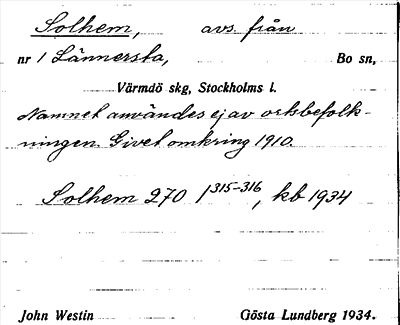 Solhem, avs. från
nr 1 Lännersta, Bo sn,
Värmdö skg, Stockholms l.
Namnet användes ej av ortsbefolk-
ningen. Givet omkring 1910.
Solhem 270 1 315-316, kb 1934
John Westin Gösta Lundberg 1934.